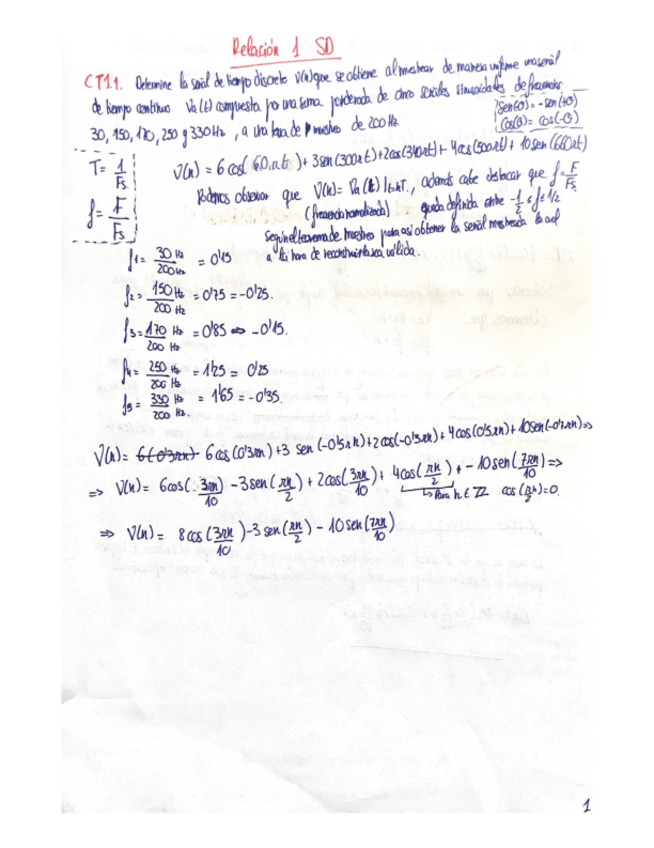 Relación 1 SD
CT1.1. Determine la señal de tiempo discreto V(n) que se obtiene al muestrear de manera uniforme una señal
de tiempo continuo Va(t) compuesta por una suma ponderada de cinco señales sinusoidales de frecuencias
30, 150, 170, 250 y 330 Hz, a una tasa de muestreo de 200 Hz.
Sen(θ) = -sen(-θ)
Cos(θ) = cos(-θ)
T = 1/Fs
f = F/Fs
V(n) = 6 cos(60πt) + 3 sen(300πt) + 2 cos(340πt) + 4 cos(500πt) + 10 sen(660πt)
Podemos observar que V(n) = Va(t)|t=nT, además cabe destacar que f = F/Fs
(frecuencia normalizada) queda definida entre -1/2 ≤ f ≤ 1/2
según el teorema de muestreo para así obtener la señal muestreada la cual
a la hora de reconstruirla sea válida.
f1 = 30 Hz/200 Hz = 0'15
f2 = 150 Hz/200 Hz = 0'75 = -0'25.
f3 = 170 Hz/200 Hz = 0'85 => -0'15.
f4 = 250 Hz/200 Hz = 1'25 = 0'25
f5 = 330 Hz/200 Hz. = 1'65 = -0'35.
V(n) = 6 cos(0'3πn) + 3 sen(-0'5πn) + 2 cos(-0'3πn) + 4 cos(0'5πn) + 10 sen(-0'7πn) =>
=> V(n) = 6 cos(3πn/10) - 3 sen(πn/2) + 2 cos(3πn/10) + 4 cos(πn/2) + - 10 sen(7πn/10) =>
↳ Para n ∈ ℤ cos(πn/2) = 0.
=> V(n) = 8 cos(3πn/10) - 3 sen(πn/2) - 10 sen(7πn/10)
1